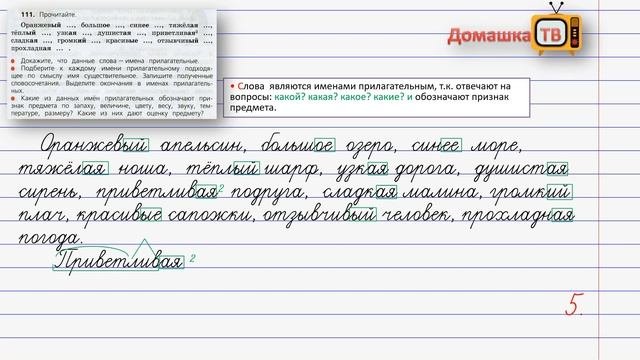 111. Прочитайте.
Оранжевый ..., большое ..., синее ..., тяжёлая ...,
тёплый ..., узкая ..., душистая ..., приветливая² ...,
сладкая ..., громкий ..., красивые ..., отзывчивый ...,
прохладная ... .
● Докажите, что данные слова – имена прилагательные.
● Подберите к каждому имени прилагательному подходя-
щее по смыслу имя существительное. Запишите полученные
словосочетания. Выделите окончания в именах прилагатель-
ных.
● Какие из данных имён прилагательных обозначают при-
знак предмета по запаху, величине, цвету, весу, звуку, тем-
пературе, размеру? Какие из них дают оценку предмету?
Домашка
ТВ
• Слова являются именами прилагательным, т.к. отвечают на
вопросы: какой? какая? какое? какие? и обозначают признак
предмета.
Оранжевый апельсин, большое озеро, синее море,
тяжёлая ноша, тёплый шарф, узкая дорога, душистая
сирень, приветливая² подруга, сладкая малина, громкий
плач, красивые сапожки, отзывчивый человек, прохладная
погода.
Приветливая ²
5.